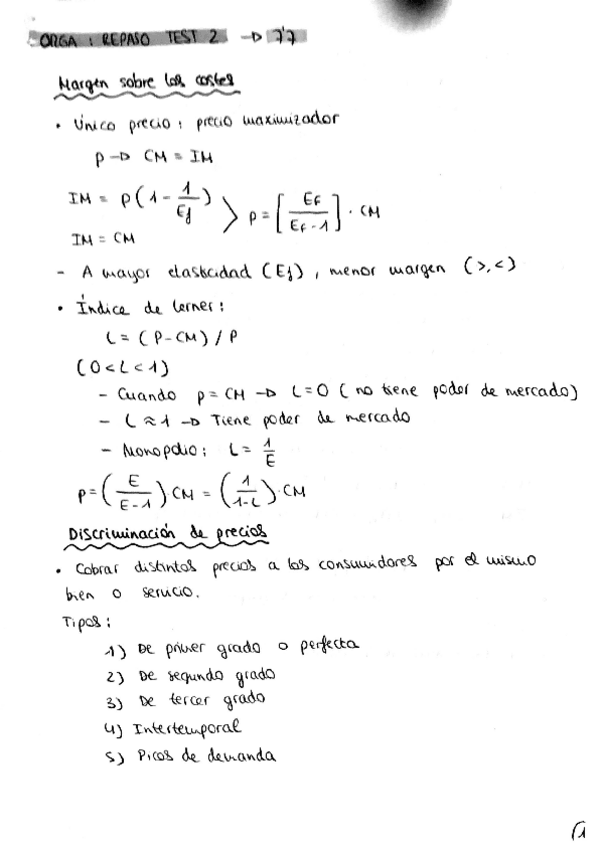 ORGA : REPASO TEST 2 → 7'7
Margen sobre los costes
• Único precio : precio maximizador
P → CM = IM
IM = P(1 - 1/Ef) > P = [Ef / Ef - 1] · CM
IM = CM
- A mayor elasticidad (Ef), menor margen (>,<)
• Índice de Lerner :
L = (P-CM) / P
(0<L<1)
- Cuando P = CM → L=0 (no tiene poder de mercado)
- L ≈ 1 → Tiene poder de mercado
- Monopolio : L = 1/E
P = (E / E-1) · CM = (1 / 1-L) · CM
Discriminación de precios
• Cobrar distintos precios a los consumidores por el mismo
bien o servicio.
Tipos :
1) De primer grado o perfecta
2) De segundo grado
3) De tercer grado
4) Intertemporal
5) Picos de demanda
1